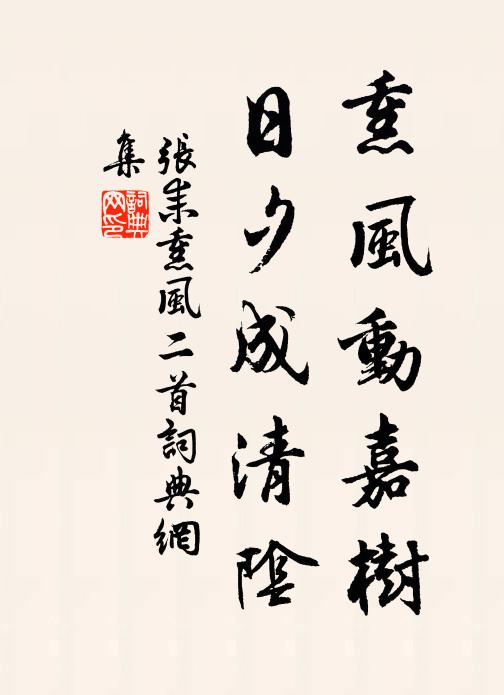 熏風動嘉樹
日夕成清陰
張耒熏風二首詞典網
集
詞典
网印